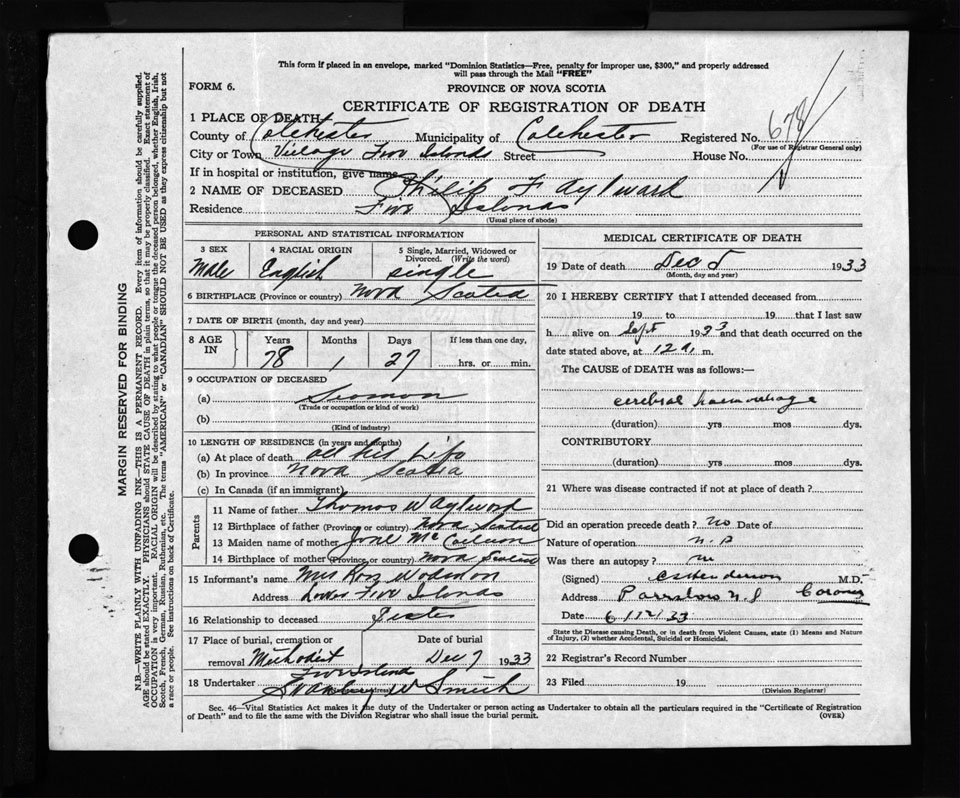 This form if placed in an envelope, marked "Dominion Statistics—Free, penalty for improper use, $300," and properly addressed
will pass through the Mail "FREE"
FORM 6.
PROVINCE OF NOVA SCOTIA
CERTIFICATE OF REGISTRATION OF DEATH
1 PLACE OF DEATH
County of Colchester Municipality of Colchester Registered No. 678
(For use of Registrar General only)
City or Town Village Five Islands Street House No.
If in hospital or institution, give name
2 NAME OF DECEASED Philip F Aylward
Residence Five Islands
(Usual place of abode)
PERSONAL AND STATISTICAL INFORMATION
3 SEX 4 RACIAL ORIGIN 5 Single, Married, Widowed or
Divorced. (Write the word)
Male English single
6 BIRTHPLACE (Province or country) Nova Scotia
7 DATE OF BIRTH (month, day and year)
8 AGE IN Years Months Days If less than one day,
78 1 27 hrs. or min.
9 OCCUPATION OF DECEASED
(a) Seaman
(Trade or occupation or kind of work)
(b)
(Kind of industry)
10 LENGTH OF RESIDENCE (in years and months)
(a) At place of death all his Life
(b) In province Nova Scotia
(c) In Canada (if an immigrant)
Parents
11 Name of father Thomas W Aylward
12 Birthplace of father (Province or country) Nova Scotia
13 Maiden name of mother Jane Mc
14 Birthplace of mother (Province or country) Nova Scotia
15 Informant's name Mrs
Address Lower Five Islands
16 Relationship to deceased Sister
17 Place of burial, cremation or Date of burial
removal Methodist Dec 7 1933
Five Island
18 Undertaker W Smith
(Address)
MEDICAL CERTIFICATE OF DEATH
19 Date of death Dec 5 1933
(Month, day and year)
20 I HEREBY CERTIFY that I attended deceased from
19 to 19 that I last saw
h alive on Sept 1933 and that death occurred on
date stated above, at 12 a. m.
The CAUSE of DEATH was as follows:—
cerebral haemorrhage
(duration) yrs mos dys.
CONTRIBUTORY
(duration) yrs. mos. dys.
21 Where was disease contracted if not at place of death?
Did an operation precede death? no Date of
Nature of operation
Was there an autopsy?
(Signed) Henderson M.D.
Address Parrsboro N.S Coroner
Date 6/12/33
State the Disease causing Death, or in death from Violent Causes, state (1) Means and Nature
of Injury, (2) whether Accidental, Suicidal or Homicidal.
22 Registrar's Record Number
23 Filed 19
(Division Registrar)
Sec. 46—Vital Statistics Act makes it the duty of the Undertaker or person acting as Undertaker to obtain all the particulars required in the "Certificate of Registration
of Death" and to file the same with the Division Registrar who shall issue the burial permit. (OVER)
MARGIN RESERVED FOR BINDING
N.B.—WRITE PLAINLY WITH UNFADING INK—THIS IS A PERMANENT RECORD. Every item of information should be carefully supplied.
AGE should be stated EXACTLY. PHYSICIANS should STATE CAUSE OF DEATH in plain terms, so that it may be properly classified. Exact statement of
OCCUPATION is very important. RACIAL ORIGIN will be described by stating to what people or tongue the deceased person belonged, whether English, Irish,
Scotch, French, German, Russian, Ruthenian, etc. The terms "AMERICAN" or "CANADIAN" SHOULD NOT BE USED as they express citizenship but not
a race or people. See instructions on back of Certificate.